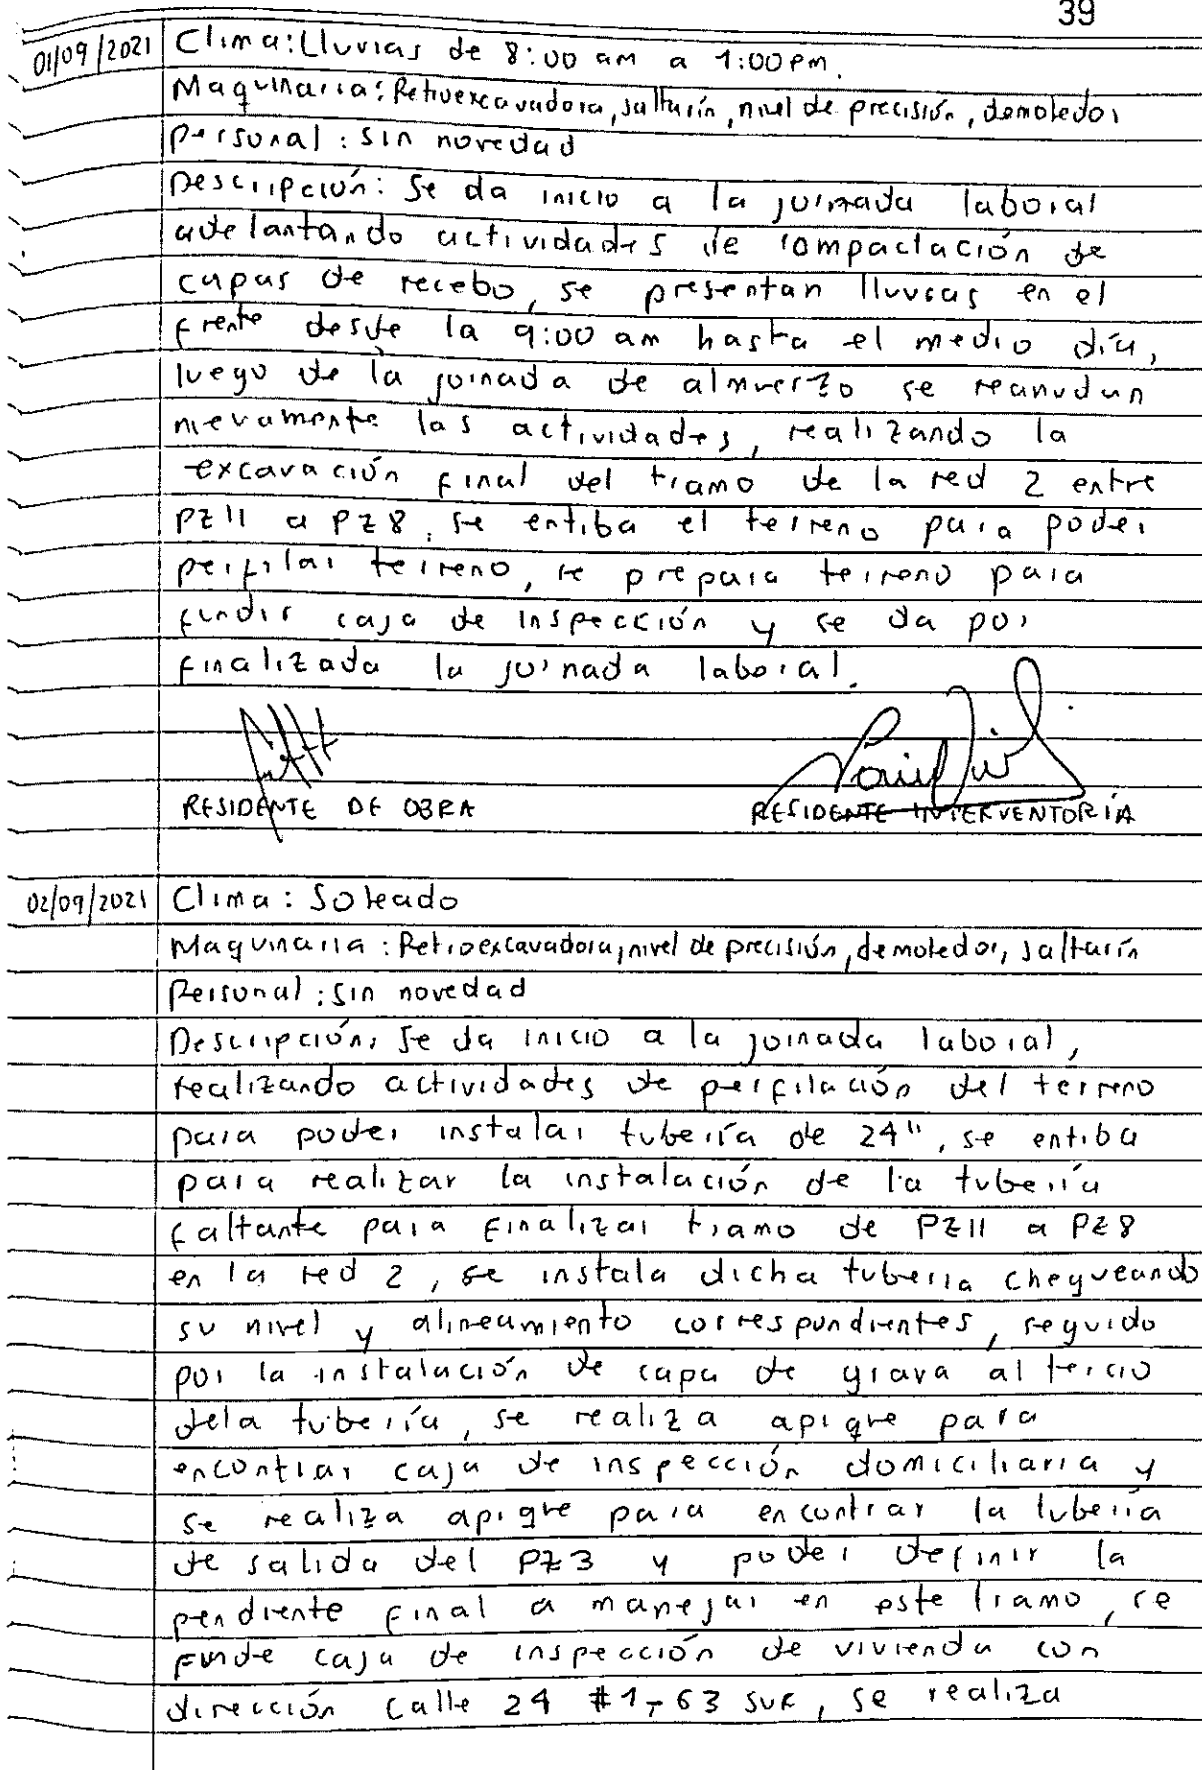 39
01/09/2021 Clima: Lluvias de 8:00 am a 1:00 pm.
Maquinaria: Retroexcavadora, saltarín, nivel de precisión, demoledor
Personal: sin novedad
Descripción: Se da inicio a la jornada laboral
adelantando actividades de compactación de
capas de recebo, se presentan lluvias en el
frente desde la 9:00 am hasta el medio día,
luego de la jornada de almuerzo se reanudan
nuevamente las actividades, realizando la
excavación final del tramo de la red 2 entre
PZ11 a PZ8, se entiba el terreno para poder
perfilar terreno, se prepara terreno para
fundir caja de inspección y se da por
finalizada la jornada laboral.
RESIDENTE DE OBRA RESIDENTE INTERVENTORIA
02/09/2021 Clima: Soleado
Maquinaria: Retroexcavadora, nivel de precisión, demoledor, saltarín
Personal: sin novedad
Descripción: Se da inicio a la jornada laboral,
realizando actividades de perfilación del terreno
para poder instalar tubería de 24", se entiba
para realizar la instalación de la tubería
faltante para finalizar tramo de PZ11 a PZ8
en la red 2, se instala dicha tubería chequeando
su nivel y alineamiento correspondientes, seguido
por la instalación de capa de grava al tercio
dela tubería, se realiza apique para
encontrar caja de inspección domiciliaria y
se realiza apique para encontrar la tubería
de salida del PZ3 y poder definir la
pendiente final a manejar en este tramo, se
funde caja de inspección de vivienda con
dirección Calle 24 #1-63 SUR, se realiza